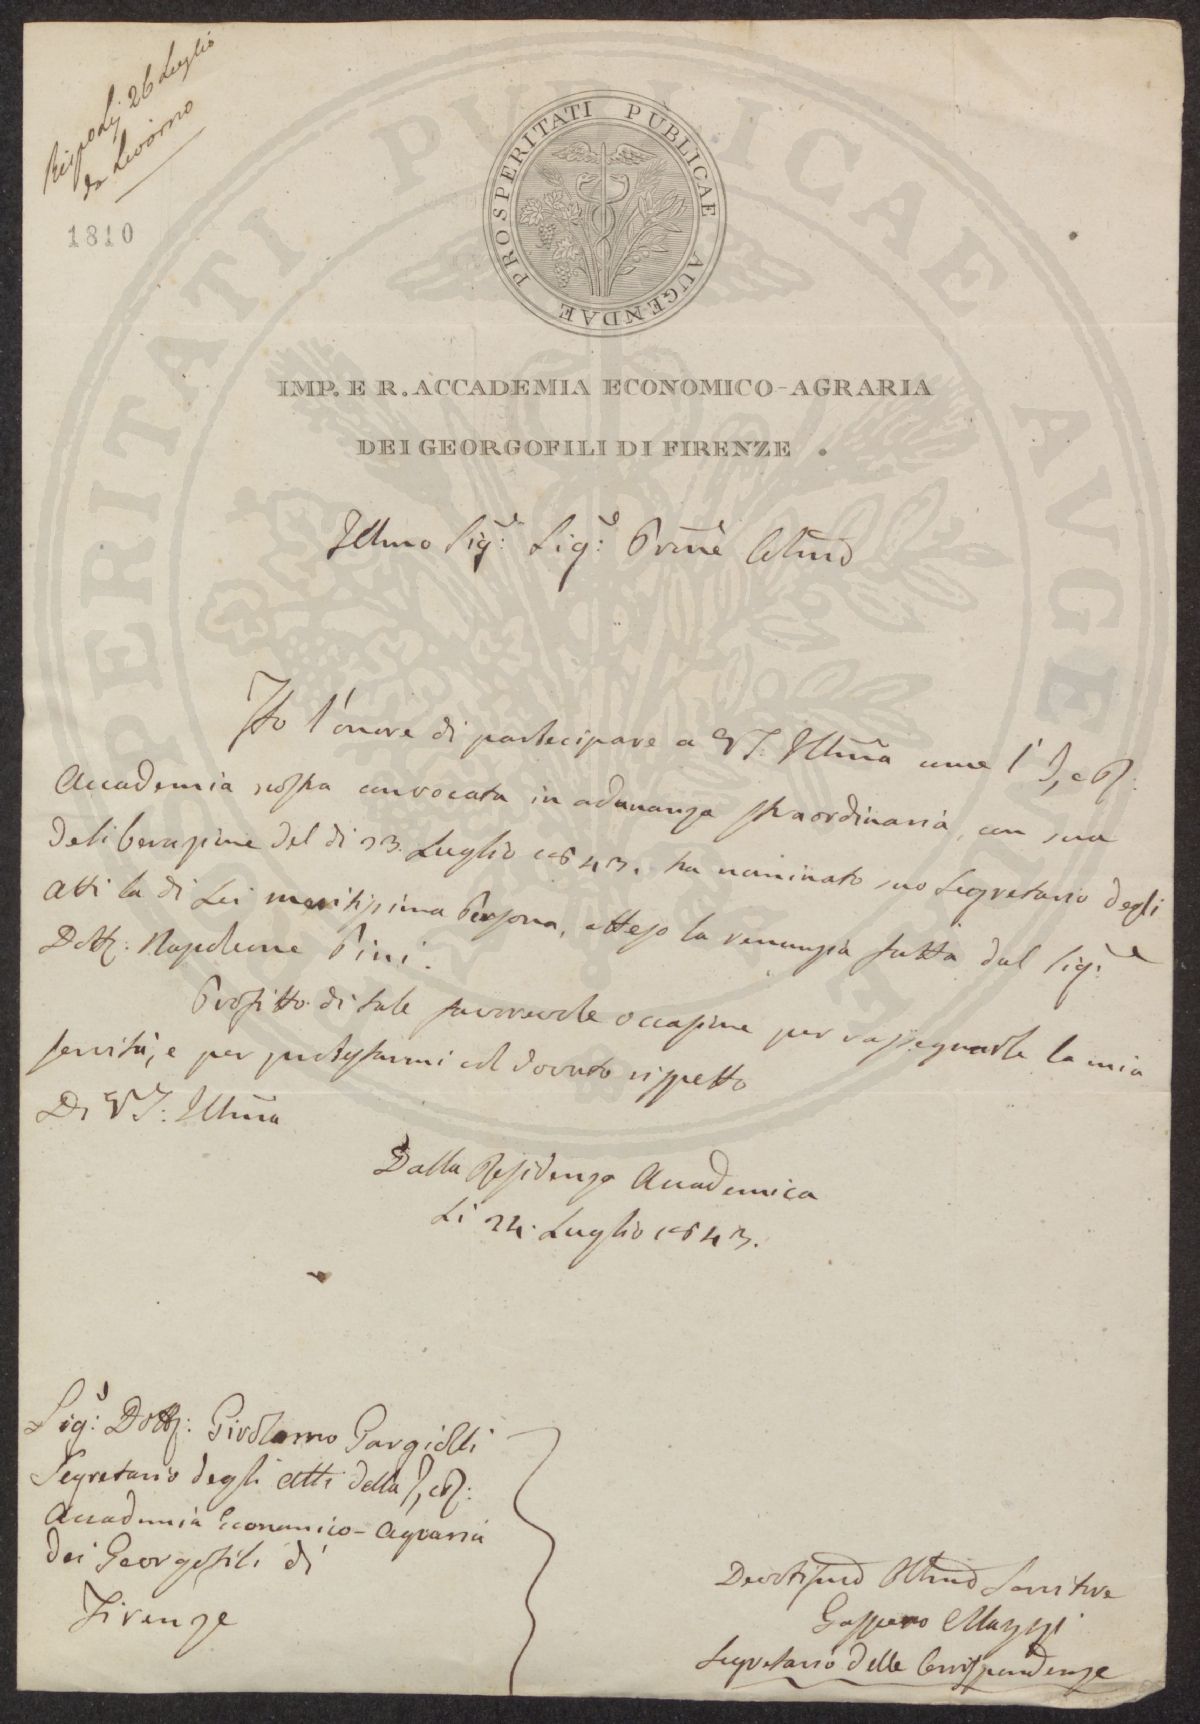 Rispo Li 26 Luglio
da Livorno
1810
PROSPERITATI PUBLICAE AUGENDAE
IMP. E R. ACCADEMIA ECONOMICO-AGRARIA
DEI GEORGOFILI DI FIRENZE.
Illmo Sig.e Sig.e Prone Colmo
Ho l'onore di partecipare a VS: Illma come l'I, e R:
Accademia nostra convocata in adunanza straordinaria, con sua
deliberazione del dì 23. Luglio 1843. ha nominato suo Segretario degli
Atti la di Lei meritissima Persona, atteso la renunzia fatta dal Sig.e
Dott: Napoleone Pini.
Profitto di tale favorevole occasione per rassegnarle la mia
servitù, e per protestarmi col dovuto rispetto
Di VS: Illma
Dalla Residenza Accademica
Li 24. Luglio 1843.
Sig.e Dott: Girolamo Gargiolli
Segretario degli Atti della I, e R:
Accademia Economico-Agraria
dei Georgofili di
Firenze
Devotissmo Obbmo Servitore
Gaspero Mazzi
Segretario delle Corrispondenze